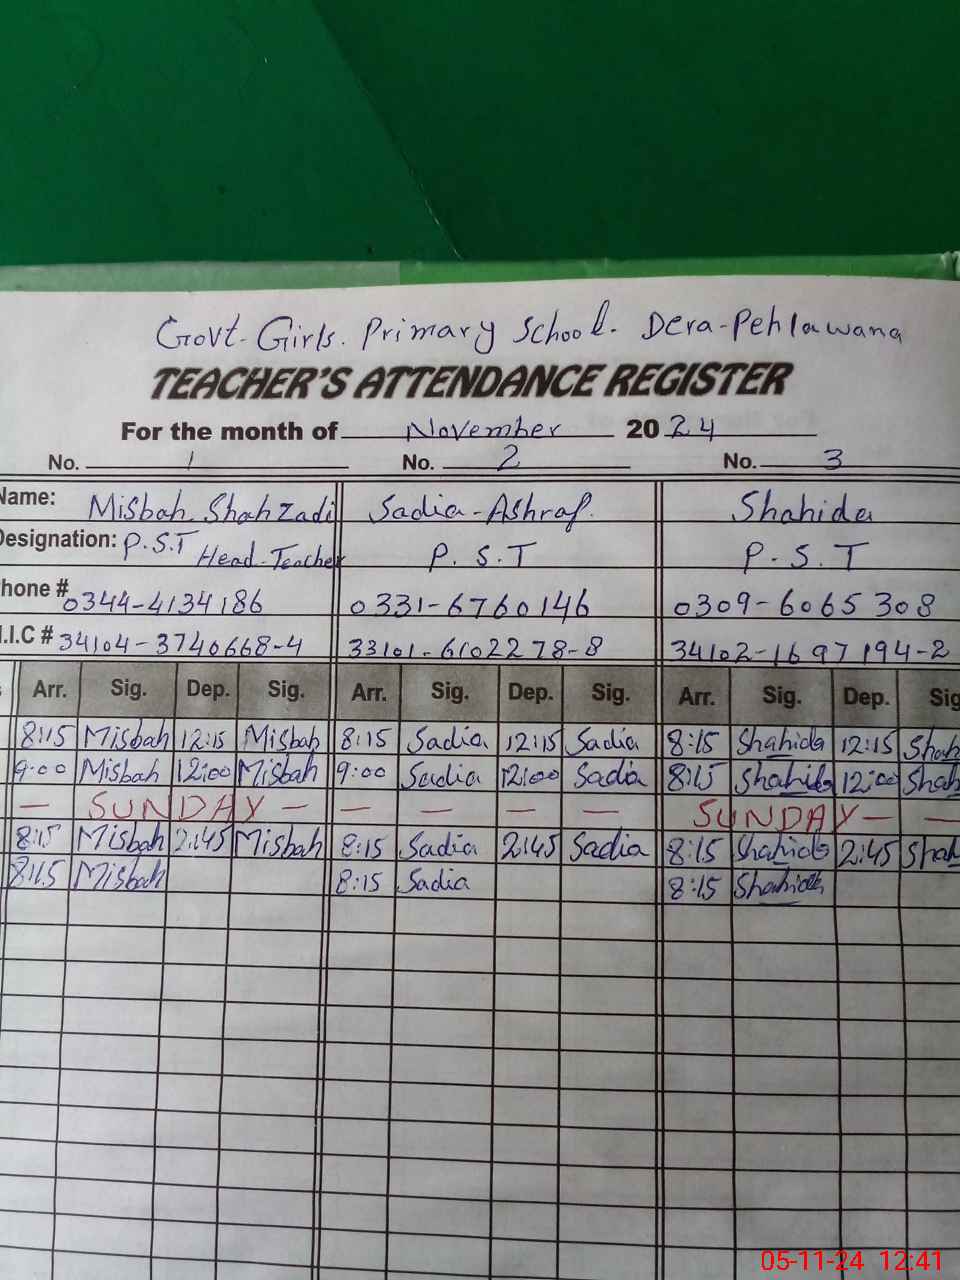 Govt. Girls. Primary School. Dera-Pehlawana
TEACHER'S ATTENDANCE REGISTER
For the month of November 2024
No. 1 No. 2 No. 3
Name: Misbah Shahzadi Sadia-Ashraf. Shahida
Designation: P.S.T Head-Teacher P.S.T P.S.T
hone # 0344-4134186 0331-6760146 0309-6065308
.I.C # 34104-3740668-4 33101-6102278-8 34102-1697194-2
Arr. Sig. Dep. Sig. Arr. Sig. Dep. Sig. Arr. Sig. Dep. Sig
8:15 Misbah 12:15 Misbah 8:15 Sadia 12:15 Sadia 8:15 Shahida 12:15 Shah
9:00 Misbah 12:00 Misbah 9:00 Sadia 12:00 Sadia 8:15 Shahida 12:00 Shah
— SUNDAY — — — — — SUNDAY — —
8:15 Misbah 2:45 Misbah 8:15 Sadia 2:45 Sadia 8:15 Shahida 2:45 Shah
8:15 Misbah 8:15 Sadia 8:15 Shahida
05-11-24 12:41